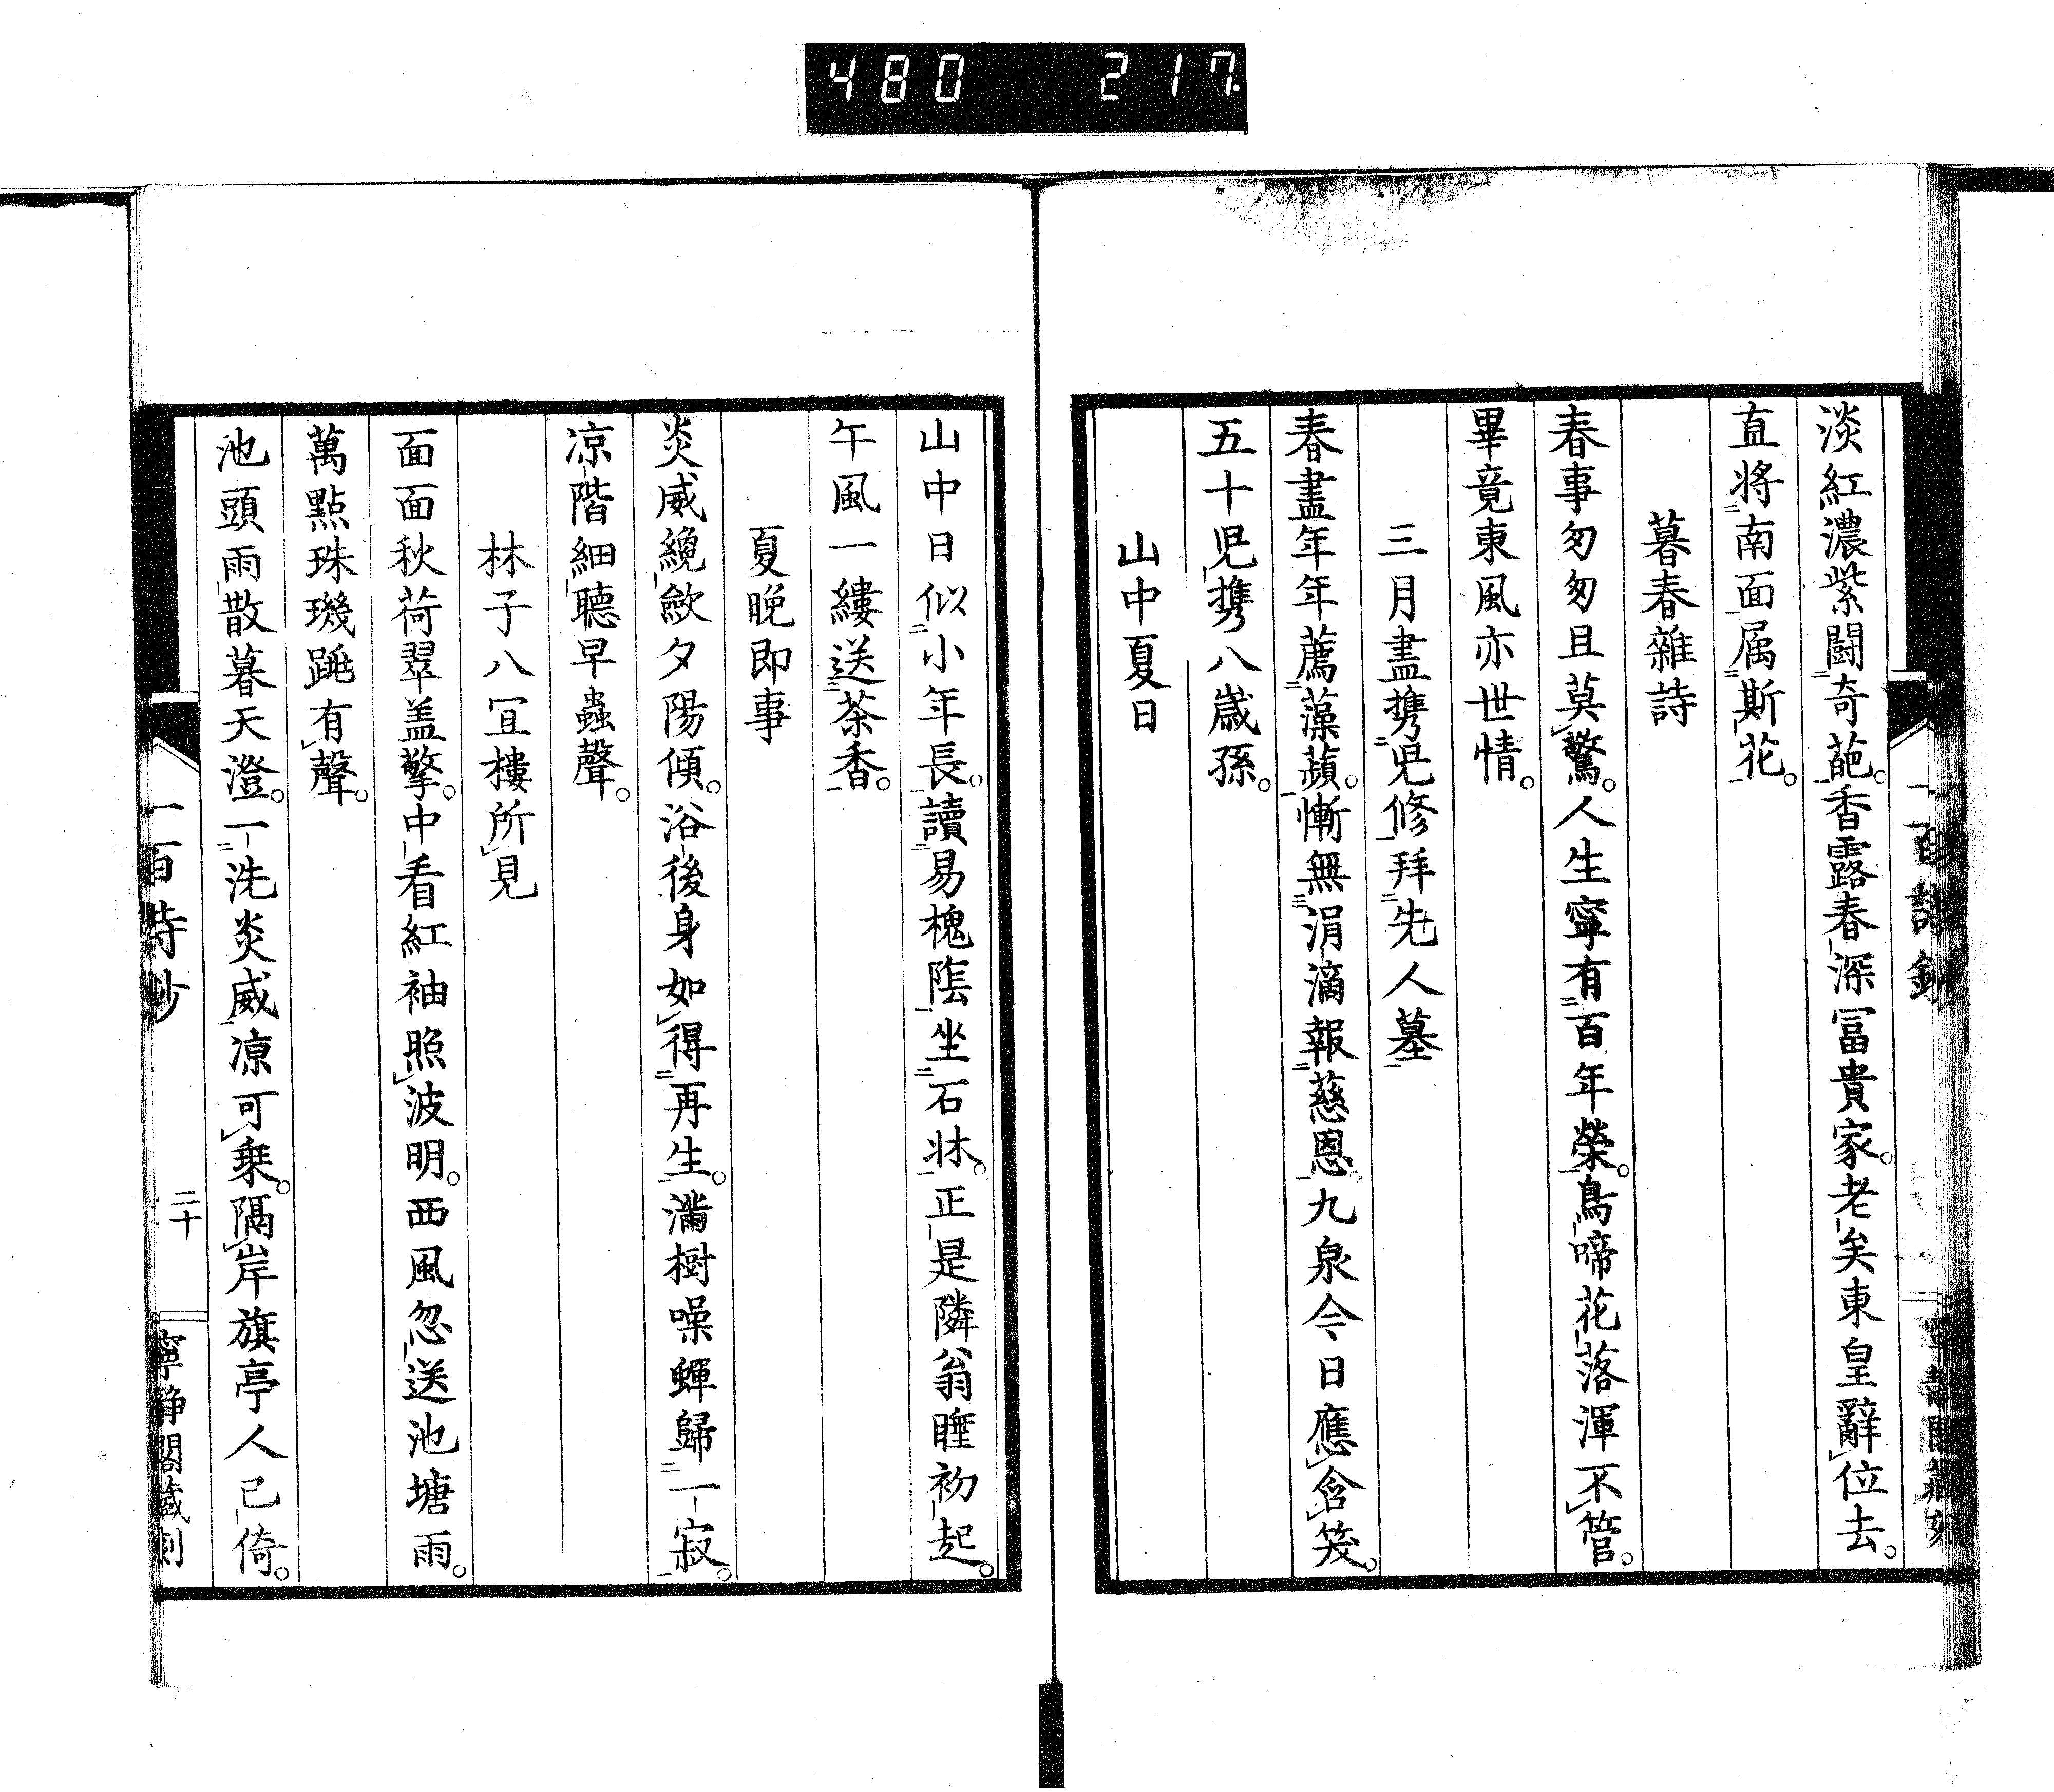 480 217.
淡紅濃紫闘奇葩。香露春深冨貴家。老矣東皇辭位去。
直將南面属斯花。
暮春雜詩
春事匆匆且莫驚。人生寧有百年榮。鳥啼花落渾不管。
畢竟東風亦世情。
三月盡携児修拜先人墓
春盡年年薦藻蘋。慚無涓滴報慈恩。九泉今日應含笑。
五十児携八歳孫。
山中夏日
山中日似小年長。讀易槐陰坐石牀。正是隣翁睡初起。
午風一縷送茶香。
夏晚即事
炎威纔斂夕陽傾。浴後身如得再生。滿樹噪蟬歸一寂。
凉階細聽早蟲聲。
林子八冝樓所見
面面秋荷翠盖擎。中看紅袖照波明。西風忽送池塘雨。
萬點珠璣跳有聲。
池頭雨散暮天澄。一洗炎威凉可乗。隔岸旗亭人已倚。
一百詩鈔 二十 寧静閣藏刻